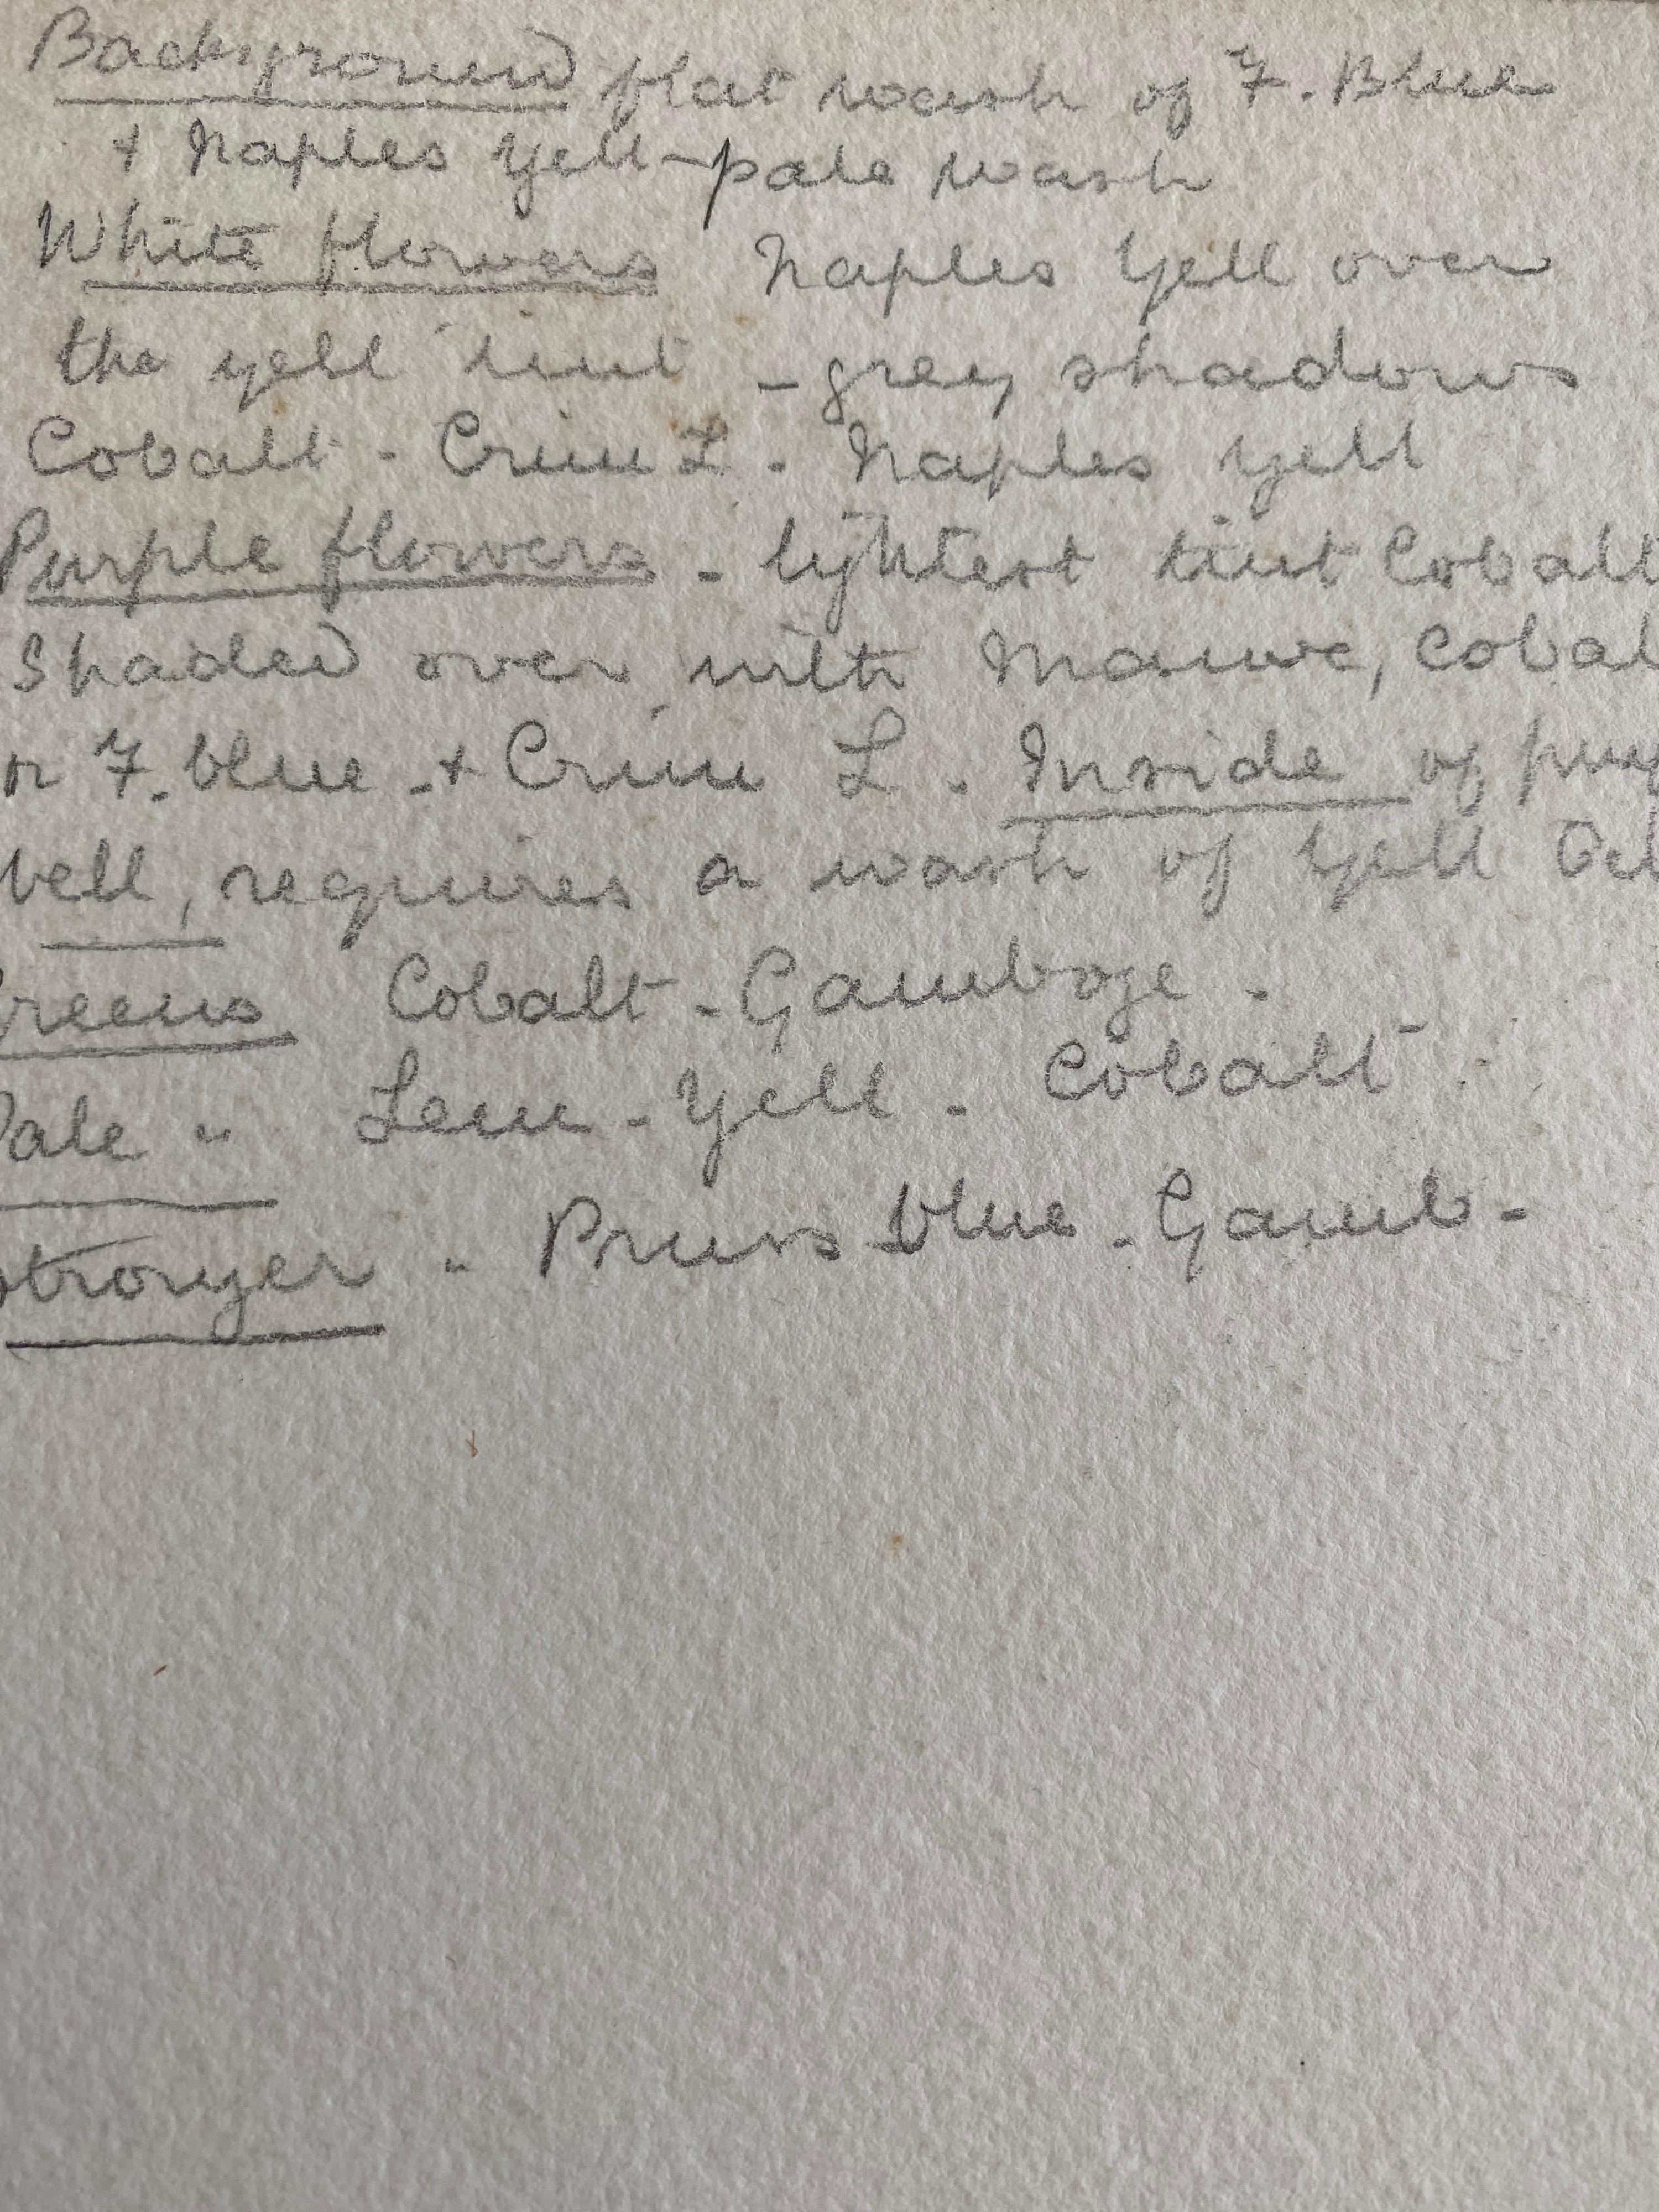 Background flat wash of F. Blue
+ Naples Yell - pale wash
White flowers Naples Yell over
the yell tint - grey shadows
Cobalt - Crim L. Naples yell
Purple flowers - lightest tint Cobalt
Shaded over with Mauve, Cobal
or F. blue - + Crim L. Inside of purp
bell, requires a wash of Yell
Greens Cobalt - Gamboge -
Pale " Lem - Yell - Cobalt
Stronger " Pruss blue - Gamb -